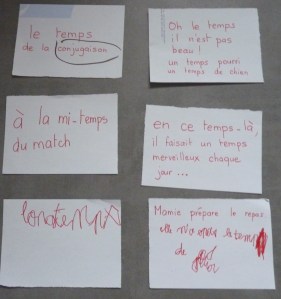 le temps
de la conjugaison
Oh le temps
il n'est pas
beau !
un temps pourri
un temps de chien
à la mi-temps
du match
en ce temps-là,
il faisait un temps
merveilleux chaque
jour ...
longtemps
Mamie prépare le repas
elle n'a le temps
de